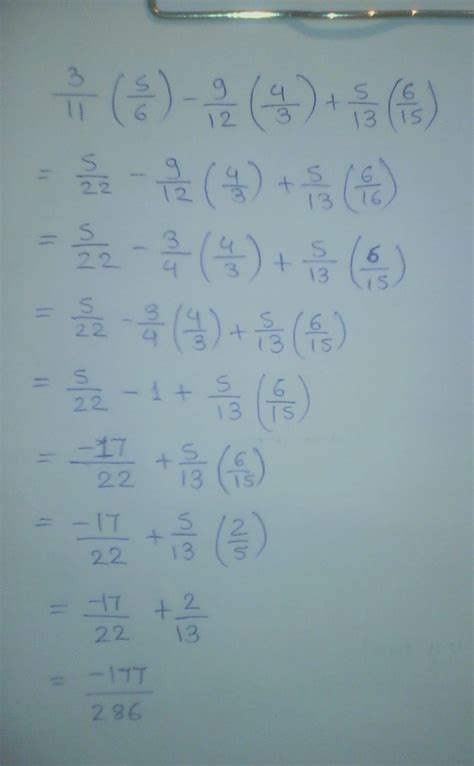 3/11 (5/6) - 9/12 (4/3) + 5/13 (6/15)
= 5/22 - 9/12 (4/3) + 5/13 (6/16)
= 5/22 - 3/4 (4/3) + 5/13 (6/15)
= 5/22 - 3/4 (4/3) + 5/13 (6/15)
= 5/22 - 1 + 5/13 (6/15)
= -17/22 + 5/13 (6/15)
= -17/22 + 5/13 (2/5)
= -17/22 + 2/13
= -177/286